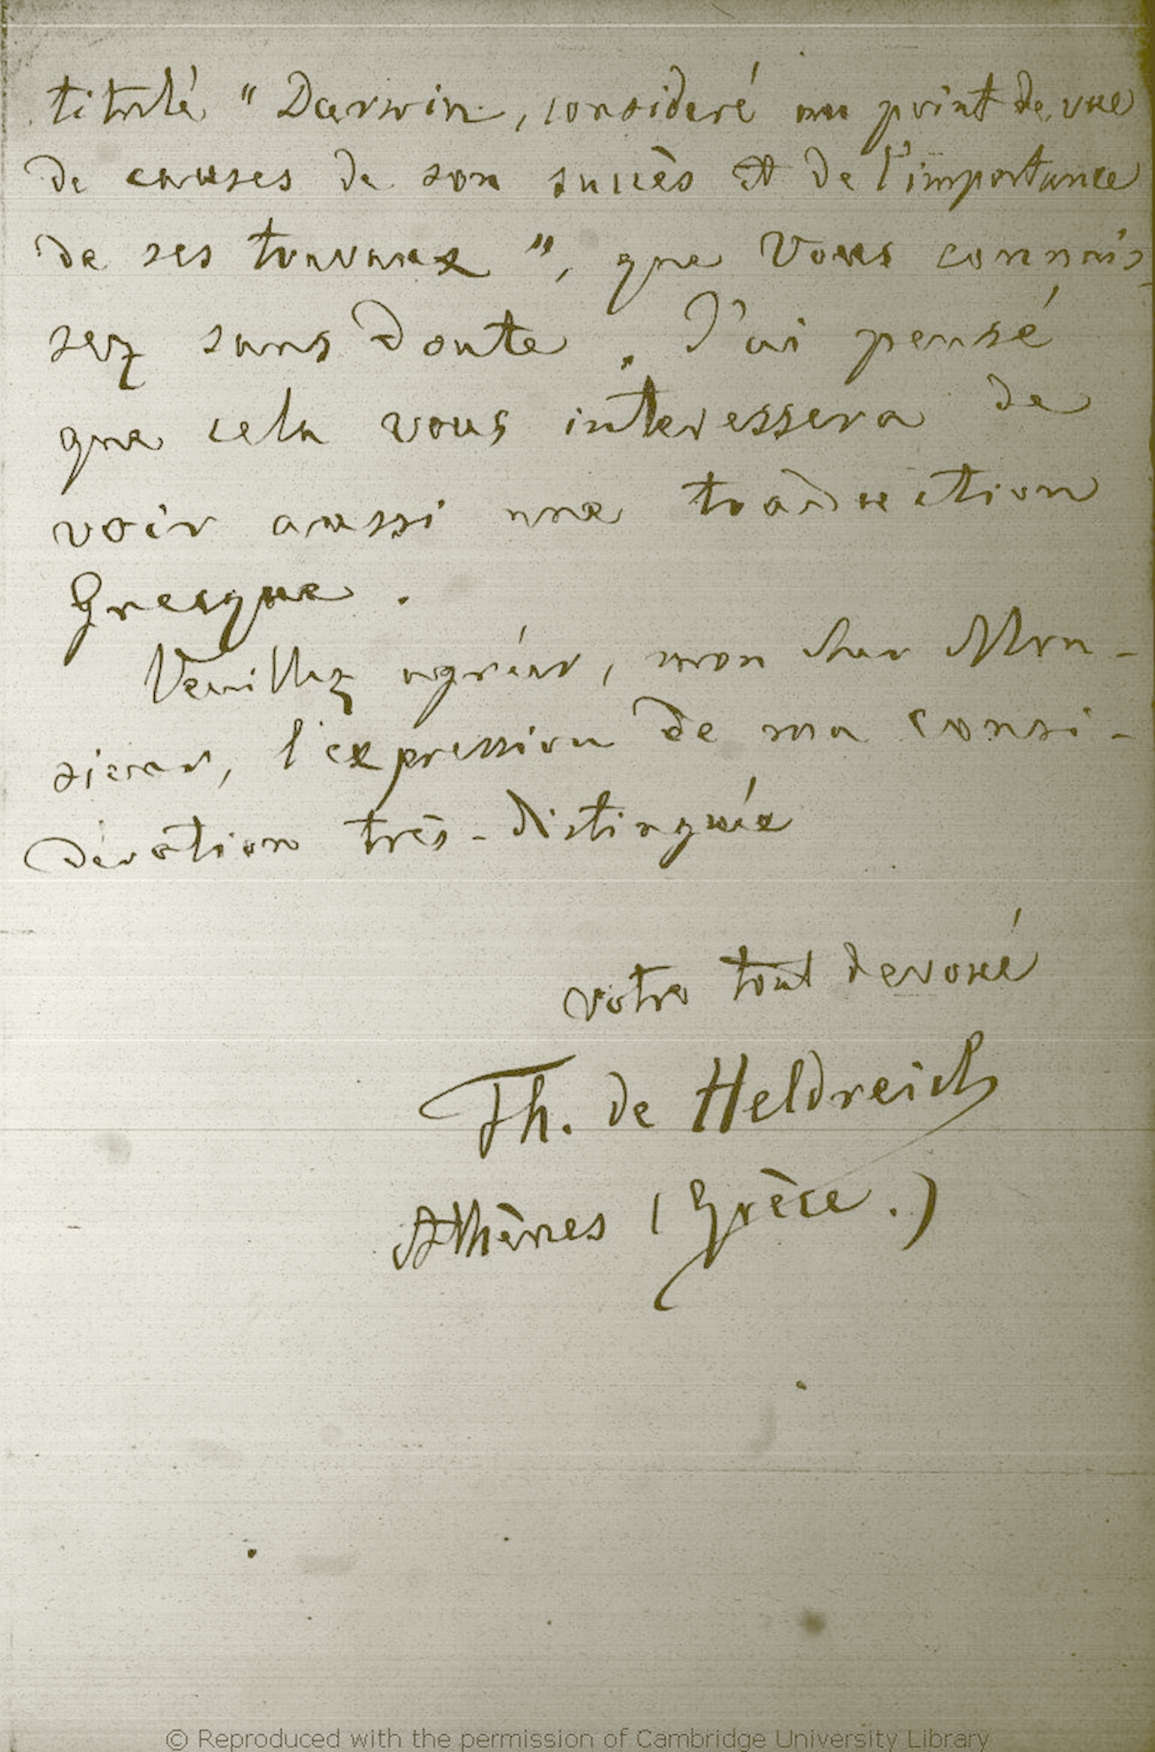 titulé "Darwin, consideré au point de vue
de causes de son succès et de l'importance
de ses travaux", que Vous connais-
sez sans doute. J'ai pensé
que cela vous interessera de
voir aussi une traduction
Grecque.
Veuillez agréer, mon cher Mon-
sieur, l'expression de ma consi-
dération très-distinguée
votre tout devoué
Th. de Heldreich
Athènes (Grèce.)
© Reproduced with the permission of Cambridge University Library